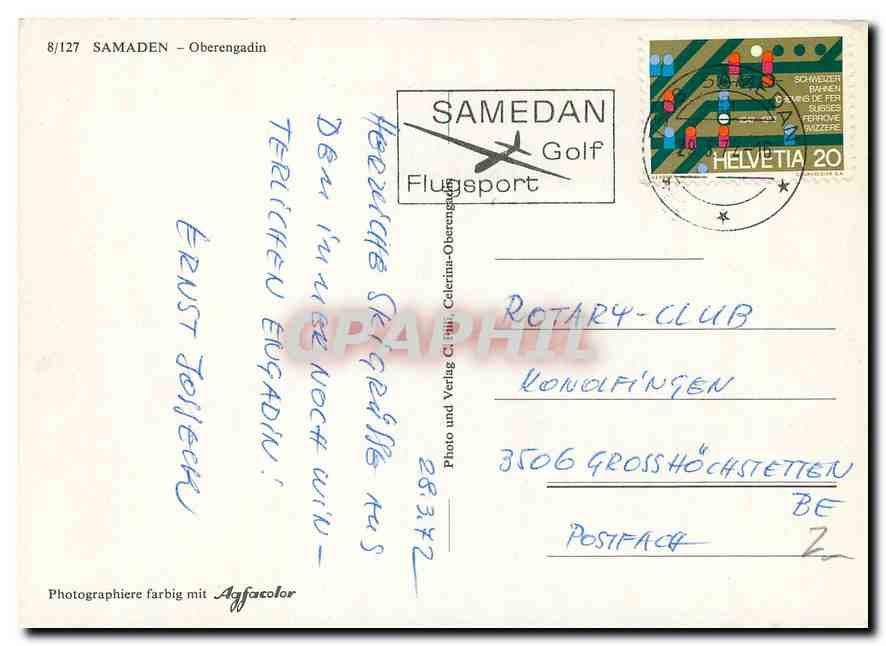 8/127 SAMADEN – Oberengadin
SAMEDAN
Golf
Flugsport
SCHWEIZER
BAHNEN
CHEMINS DE FER
SUISSES
FERROVIE
SVIZZERE
HELVETIA 20
COURVOISIER S.A.
28.3.72
HERZLICHE SKIGRÜSSE AUS
DEM IMMER NOCH WIN-
TERLICHEN ENGADIN!
ERNST
Photo und Verlag C. Filli, Celerina-Oberengadin
ROTARY-CLUB
KONOLFINGEN
3506 GROSSHÖCHSTETTEN
BE
POSTFACH
CPAPHIL
Photographiere farbig mit Agfacolor